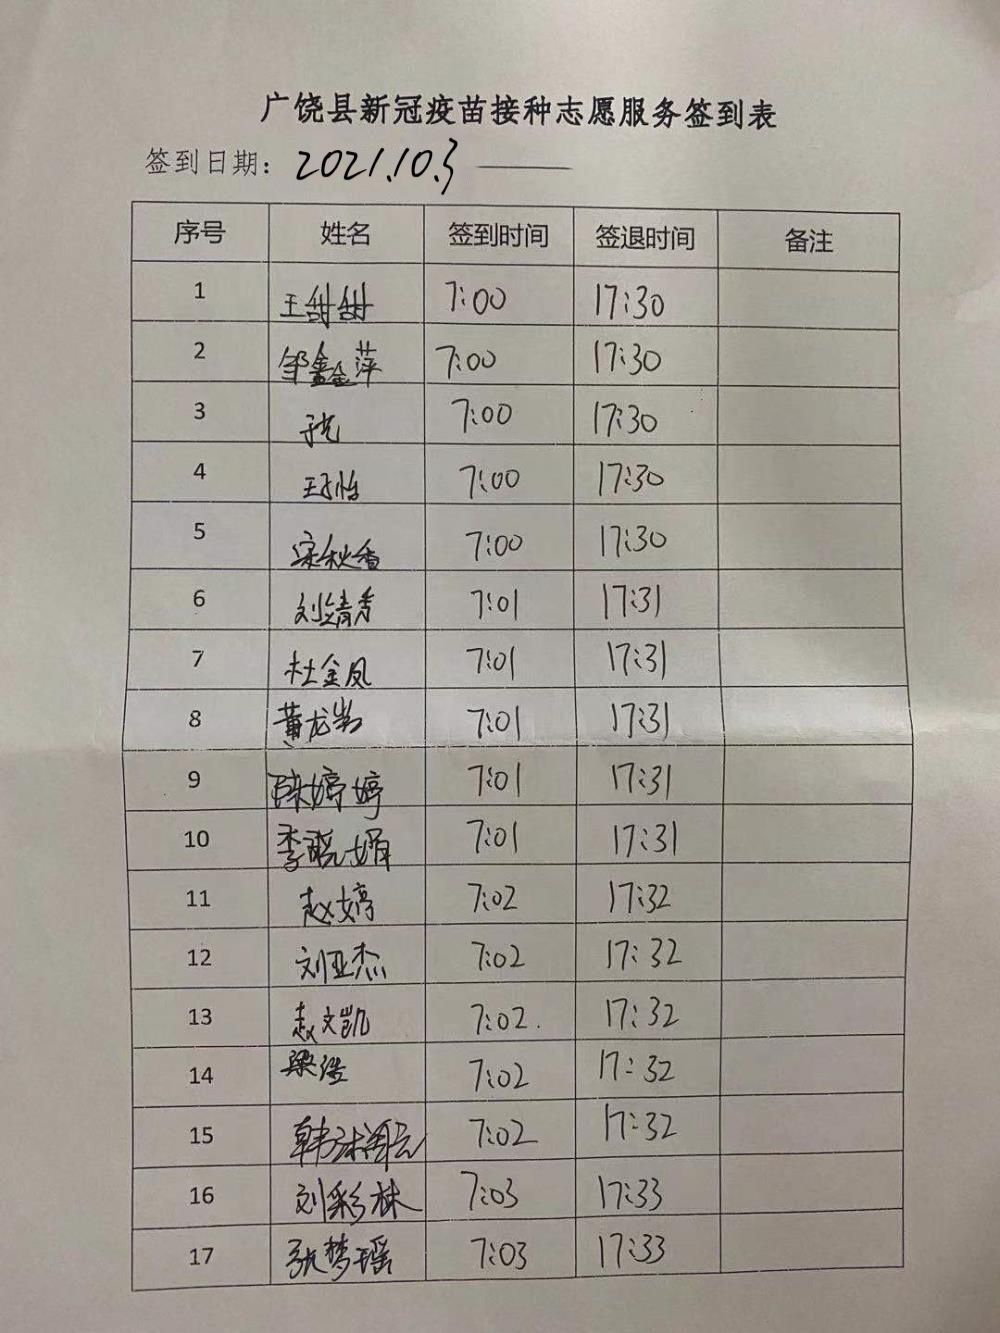 广饶县新冠疫苗接种志愿服务签到表
签到日期：2021.10.3
序号 姓名 签到时间 签退时间 备注
1 王甜甜 7:00 17:30
2 邹鑫萍 7:00 17:30
3 7:00 17:30
4 7:00 17:30
5 宋秋香 7:00 17:30
6 刘靖秀 7:01 17:31
7 杜金凤 7:01 17:31
8 黄龙 7:01 17:31
9 陈婷婷 7:01 17:31
10 李晓娟 7:01 17:31
11 赵婷 7:02 17:32
12 刘亚杰 7:02 17:32
13 赵文凯 7:02. 17:32
14 梁洁 7:02 17:32
15 韩 7:02 17:32
16 刘彩林 7:03 17:33
17 张梦瑶 7:03 17:33